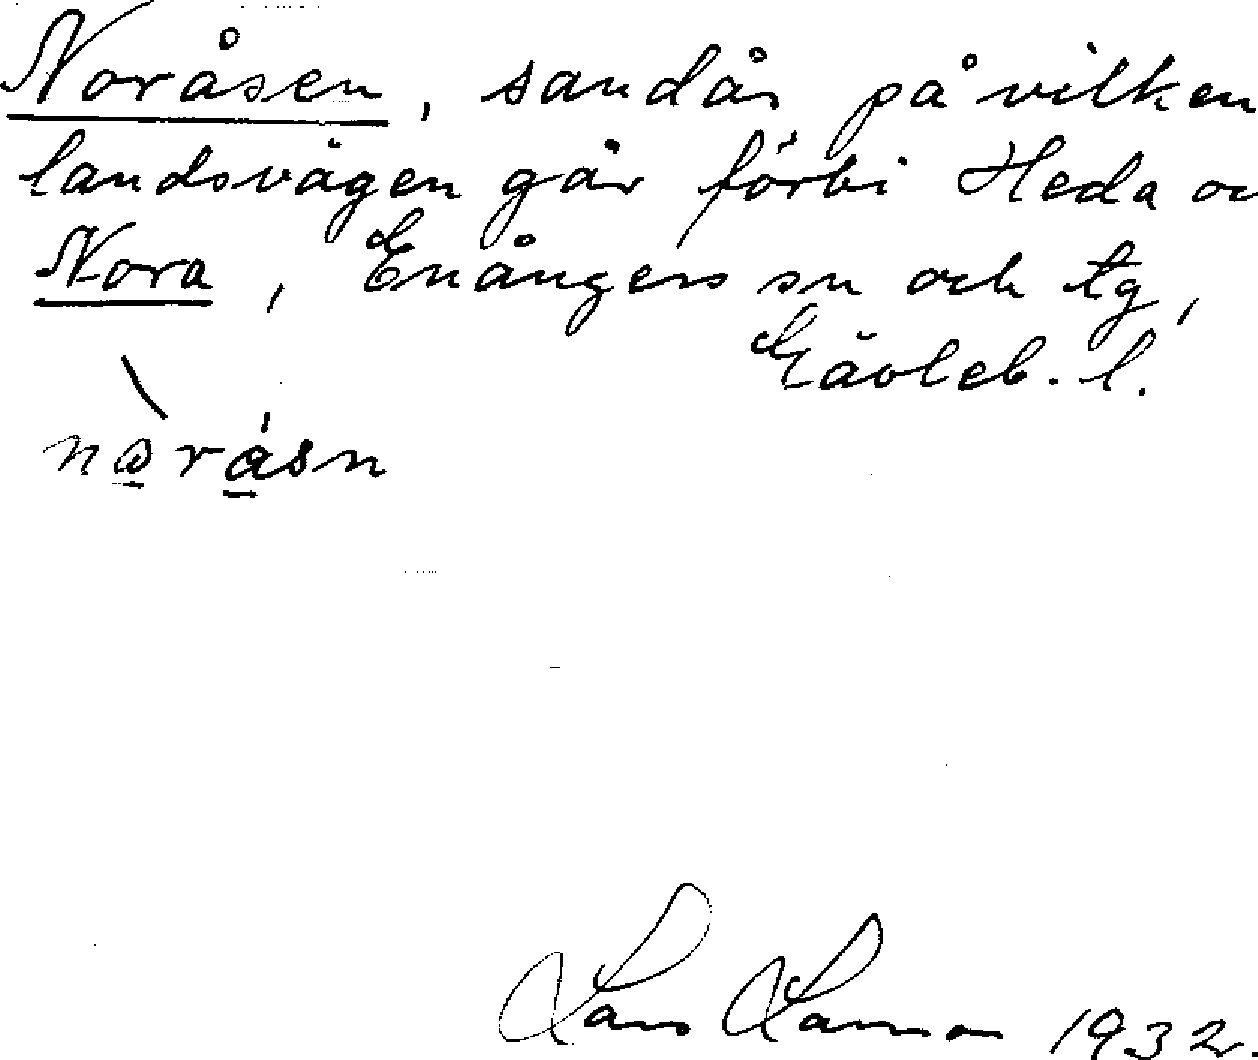 Noråsen, sandås på vilken
landsvägen går förbi Heda oc
Nora, Enångers sn och tg,
Gävleb. l.
Lars Larsson 1932.